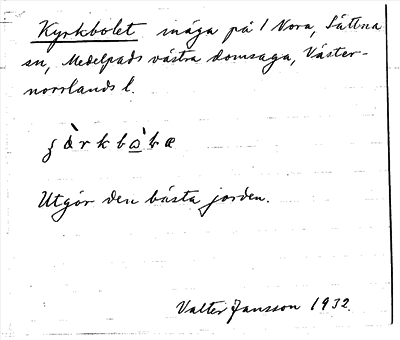 Kyrkbolet måga på 1 Nora, Sättna
sn, Medelpads västra domsaga, Väster-
norrlands l.
Utgör den bästa jorden.
Valter Jansson 1932.